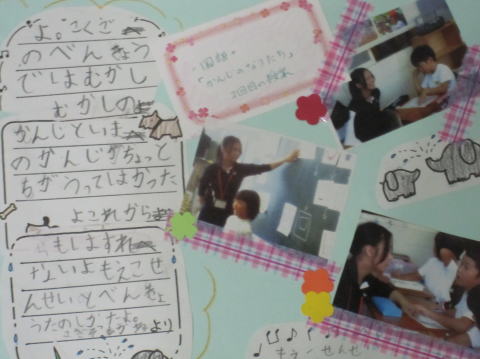 よ。こくご
のべんきょう
でしはむかし
むかしの
かんじといま
のかんじがちょっと
ちがうってしはかった
よこれから
もしますれ
ないよもえこせ
んせいとべんきょ
うたのしかったよ。
より
国語
「かんじのなりたち」
2回目の授業
もえこせんせ